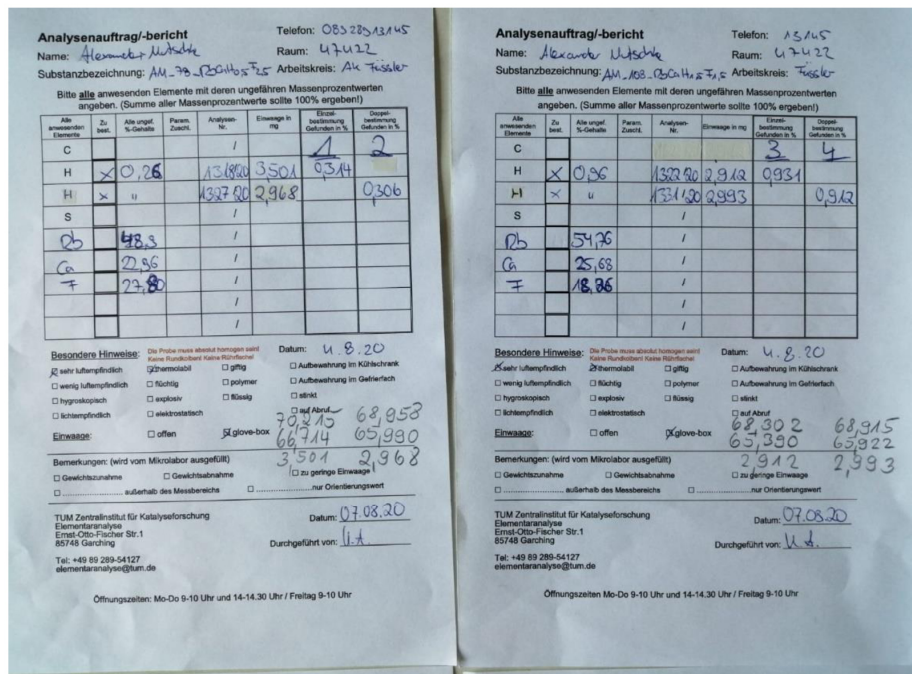 Analysenauftrag/-bericht
Telefon: 089 289 13145
Name: Alexander Mutschke
Raum: 47422
Substanzbezeichnung: AM_79_RbCaH0,5F2,5 Arbeitskreis: Ak Fässler
Bitte alle anwesenden Elemente mit deren ungefähren Massenprozentwerten
angeben. (Summe aller Massenprozente sollte 100% ergeben!)
Alle anwesenden Elemente Zu best. Alle ungef. %-Gehalte Param. Zuschl. Analysen-Nr. Einwaage in mg Einzel-bestimmung Gefunden in % Doppel-bestimmung Gefunden in %
C / 1 2
H x 0,26 1318/20 3,501 0,314
H x " 1327/20 2,968 0,306
S /
Rb 48,9 /
Ca 22,96 /
F 27,80 /
/
/
Besondere Hinweise: Die Probe muss absolut homogen sein! Keine Rundkolben! Keine Rührfische!
Datum: 4.8.20
☒ sehr luftempfindlich ☒ thermolabil ☐ giftig ☐ Aufbewahrung im Kühlschrank
☐ wenig luftempfindlich ☐ flüchtig ☐ polymer ☐ Aufbewahrung im Gefrierfach
☐ hygroskopisch ☐ explosiv ☐ flüssig ☐ stinkt
☐ lichtempfindlich ☐ elektrostatisch ☐ auf Abruf
70,215 68,958
Einwaage: ☐ offen ☒ glove-box 66,714 65,990
3,501 2,968
Bemerkungen: (wird vom Mikrolabor ausgefüllt)
☐ Gewichtszunahme ☐ Gewichtsabnahme ☐ zu geringe Einwaage
☐ ............................ außerhalb des Messbereichs ☐ ............................nur Orientierungswert
TUM Zentralinstitut für Katalyseforschung
Elementaranalyse
Ernst-Otto-Fischer Str.1
85748 Garching
Datum: 07.08.20
Durchgeführt von: U.A.
Tel: +49 89 289-54127
elementaranalyse@tum.de
Öffnungszeiten: Mo-Do 9-10 Uhr und 14-14.30 Uhr / Freitag 9-10 Uhr
Analysenauftrag/-bericht
Telefon: 13145
Name: Alexander Mutschke
Raum: 47422
Substanzbezeichnung: AM_108_RbCaH1,5F1,5 Arbeitskreis: Fässler
Bitte alle anwesenden Elemente mit deren ungefähren Massenprozentwerten
angeben. (Summe aller Massenprozente sollte 100% ergeben!)
Alle anwesenden Elemente Zu best. Alle ungef. %-Gehalte Param. Zuschl. Analysen-Nr. Einwaage in mg Einzel-bestimmung Gefunden in % Doppel-bestimmung Gefunden in %
C 3 4
H x 0,96 1322/20 2,912 0,931
H x " 1331/20 2,993 0,912
S /
Rb 54,76 /
Ca 25,68 /
F 18,26 /
/
/
Besondere Hinweise: Die Probe muss absolut homogen sein! Keine Rundkolben! Keine Rührfische!
Datum: 4.8.20
☒ sehr luftempfindlich ☒ thermolabil ☐ giftig ☐ Aufbewahrung im Kühlschrank
☐ wenig luftempfindlich ☐ flüchtig ☐ polymer ☐ Aufbewahrung im Gefrierfach
☐ hygroskopisch ☐ explosiv ☐ flüssig ☐ stinkt
☐ lichtempfindlich ☐ elektrostatisch ☐ auf Abruf
68,302 68,915
Einwaage: ☐ offen ☒ glove-box 65,390 65,922
2,912 2,993
Bemerkungen: (wird vom Mikrolabor ausgefüllt)
☐ Gewichtszunahme ☐ Gewichtsabnahme ☐ zu geringe Einwaage
☐ ............................ außerhalb des Messbereichs ☐ ............................nur Orientierungswert
TUM Zentralinstitut für Katalyseforschung
Elementaranalyse
Ernst-Otto-Fischer Str.1
85748 Garching
Datum: 07.08.20
Durchgeführt von: U.A.
Tel: +49 89 289-54127
elementaranalyse@tum.de
Öffnungszeiten: Mo-Do 9-10 Uhr und 14-14.30 Uhr / Freitag 9-10 Uhr